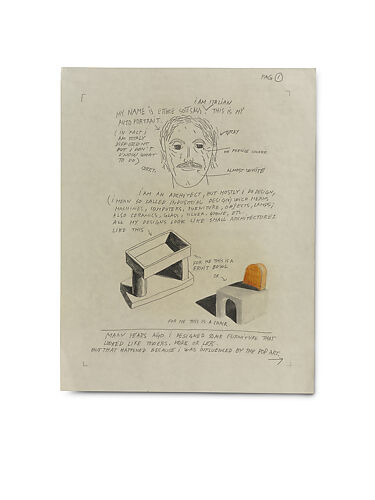 PAG 1
I AM ITALIAN
MY NAME IS ETTORE SOTTSASS. THIS IS MY
AUTO PORTRAIT.
(IN FACT I
AM MORE
DIFFERENT
BUT I DON'T
KNOW WHAT
TO DO)
GRAY
OR PERSUE COLORE
GREY
ALMOST WHITE
I AM AN ARCHITECT, BUT MOSTLY I DO DESIGN,
(I MEAN SO CALLED INDUSTRIAL DESIGN) WICH MEANS
MACHINES, COMPUTERS, FURNITURE, OBJECTS, LAMPS,
ALSO CERAMICS, GLASS, SILVER, STONE, ETC.
ALL MY DESIGNS LOOK LIKE SMALL ARCHITECTURES
LIKE THIS
FOR ME THIS IS A
FRUIT BOWL
OR
FOR ME THIS IS A CHAIR
MANY YEARS AGO I DESIGNED SOME FURNITURE THAT
LOOKED LIKE TOWERS, MORE OR LESS.
BUT THAT HAPPENED BECAUSE I WAS INFLUENCED BY THE POP ART.